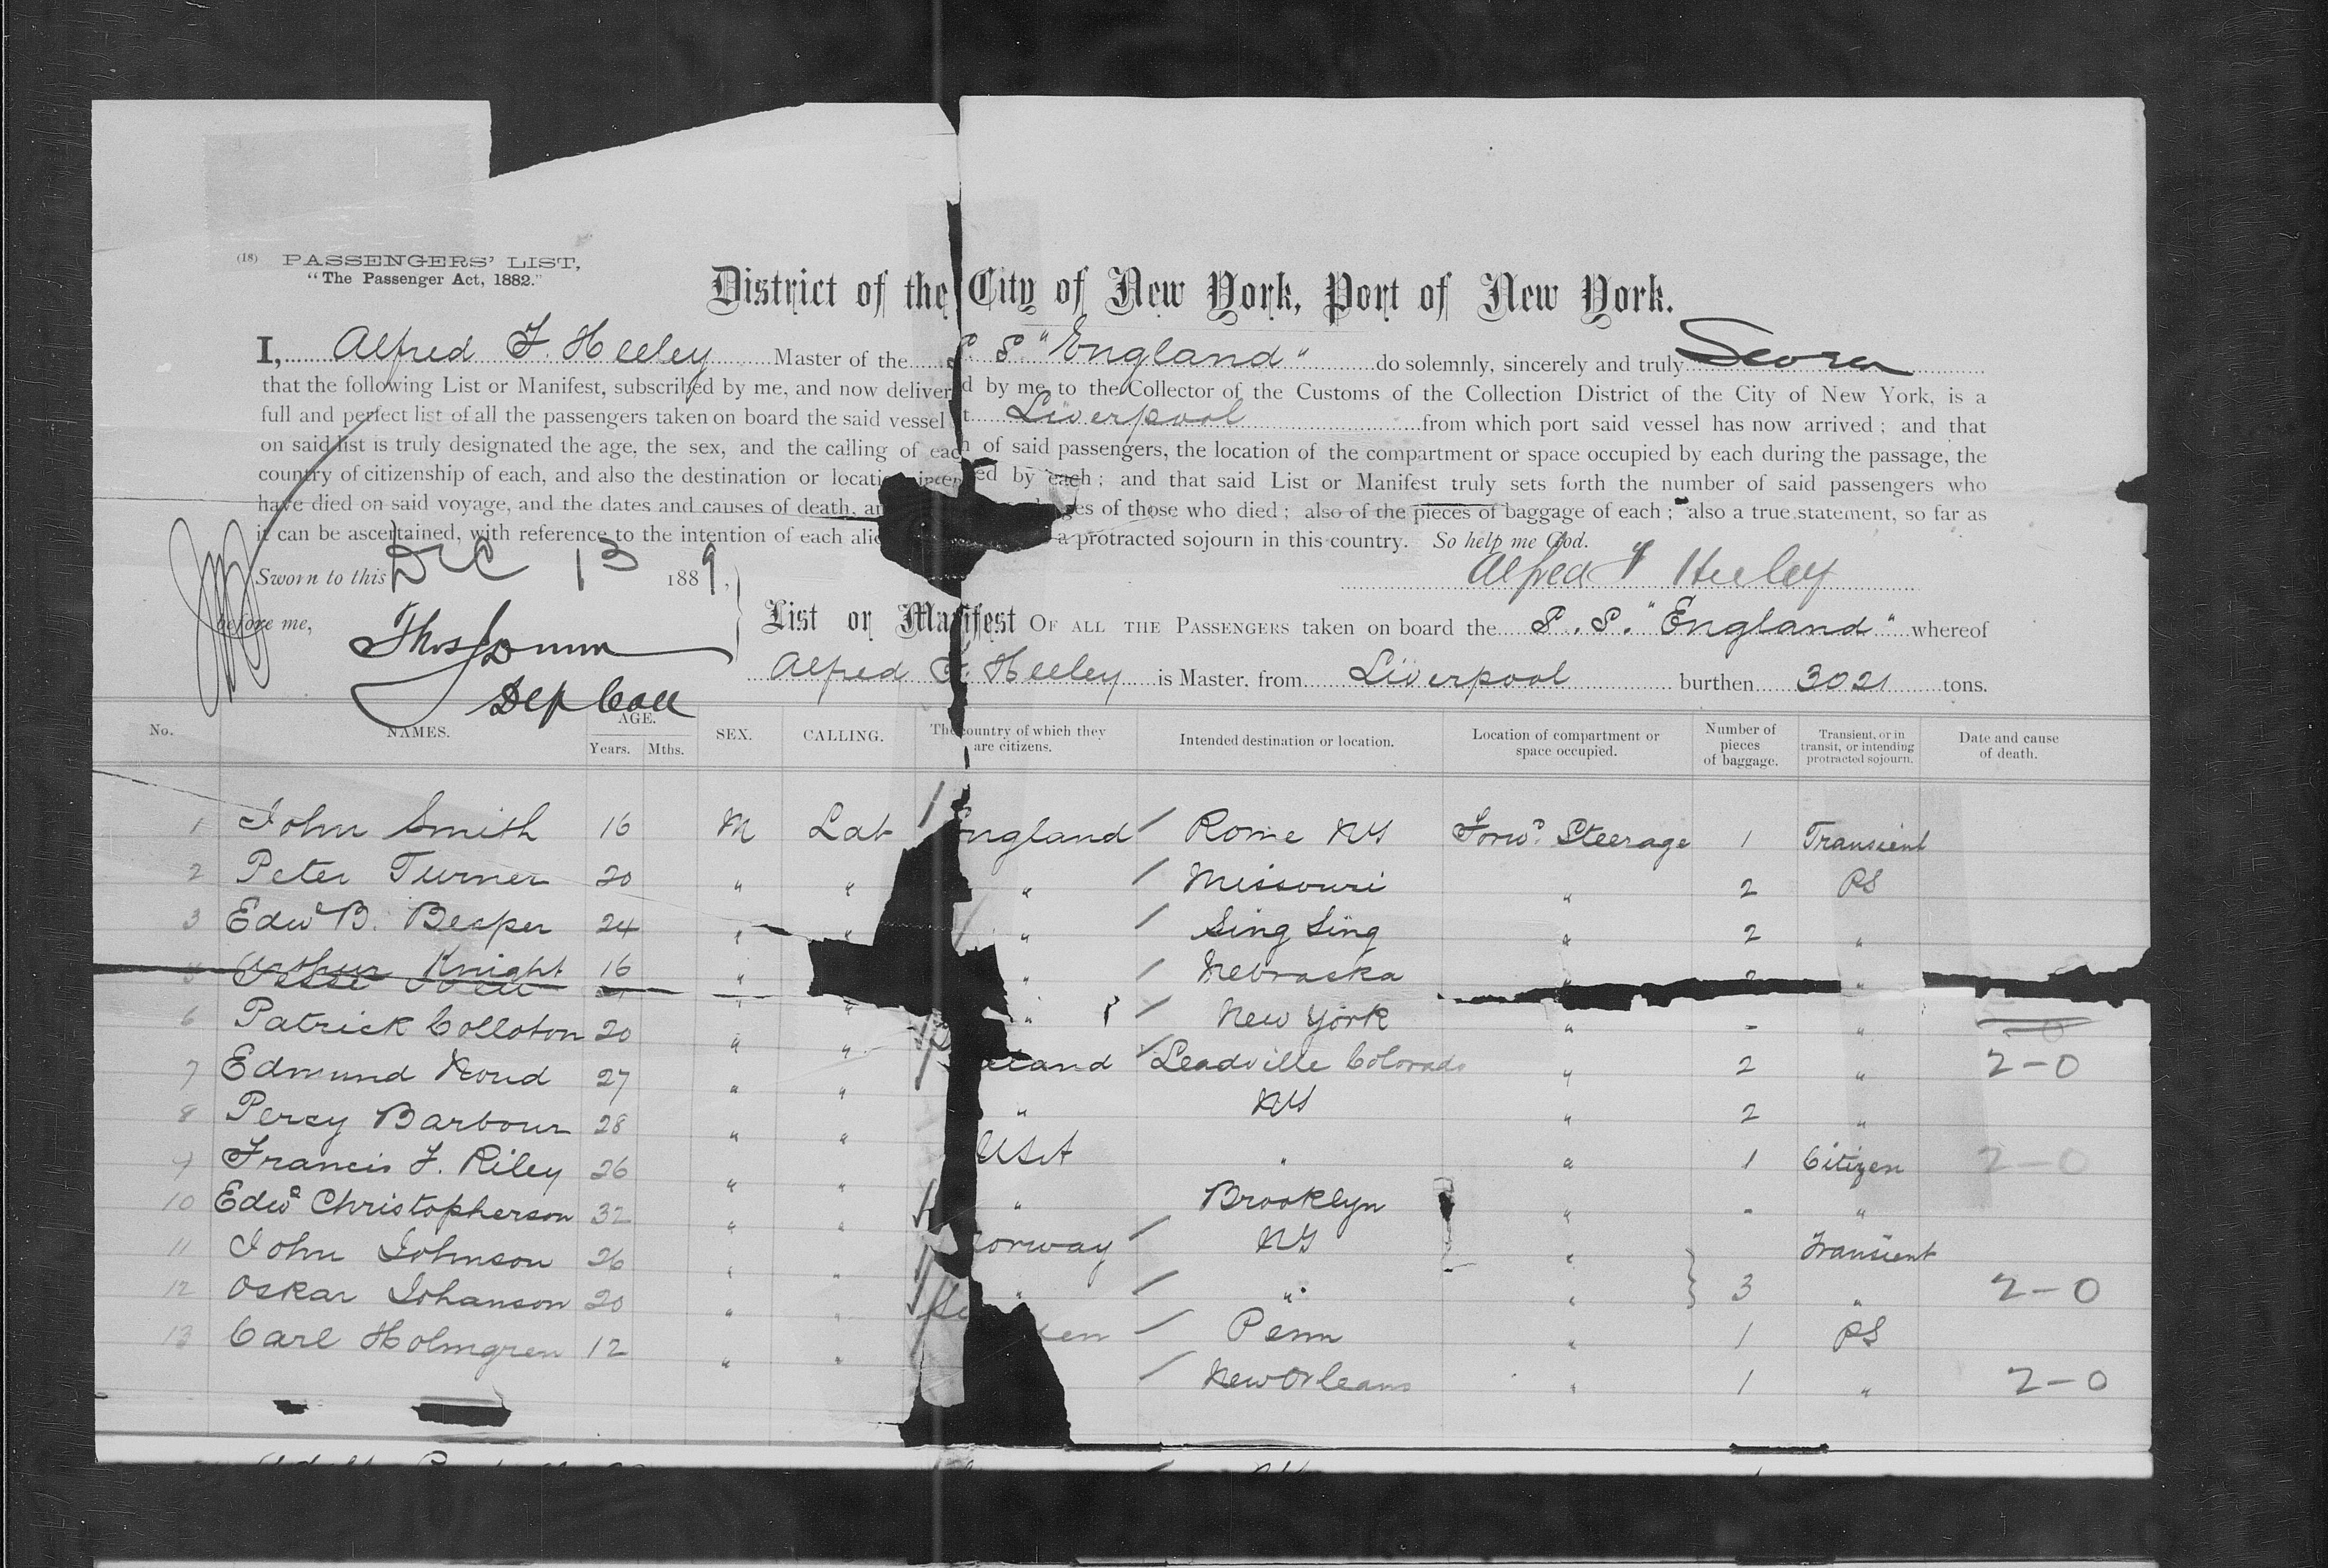 (18) PASSENGERS' LIST,
"The Passenger Act, 1882."
District of the City of New York, Port of New York.
I, Alfred F. Heeley Master of the S. S. "England" do solemnly, sincerely and truly Swear
that the following List or Manifest, subscribed by me, and now deliver d by me to the Collector of the Customs of the Collection District of the City of New York, is a
full and perfect list of all the passengers taken on board the said vessel t Liverpool from which port said vessel has now arrived; and that
on said list is truly designated the age, the sex, and the calling of each of said passengers, the location of the compartment or space occupied by each during the passage, the
country of citizenship of each, and also the destination or location inten ed by each; and that said List or Manifest truly sets forth the number of said passengers who
have died on said voyage, and the dates and causes of death, an es of those who died; also of the pieces of baggage of each; also a true statement, so far as
it can be ascertained, with reference to the intention of each alie a protracted sojourn in this country. So help me God.
Sworn to this DEC 13 1889, Alfred F Heeley
before me, List or Manifest OF ALL THE PASSENGERS taken on board the S. S. "England" whereof
Alfred F. Heeley is Master, from Liverpool burthen 3021 tons.
Dep Coll
No. NAMES. AGE. Years. Mths. SEX. CALLING. The country of which they are citizens. Intended destination or location. Location of compartment or space occupied. Number of pieces of baggage. Transient, or in transit, or intending protracted sojourn. Date and cause of death.
1 John Smith 16 M Lab England / Rome NY Forwd. Steerage 1 Transient
2 Peter Turner 20 " " " / Missouri " 2 PS
3 Edwd B. Besper 24 " " " / Sing Sing " 2 "
Arthur Knight 16 " " / Nebraska "
5 Jesse " " " / New York " - "
6 Patrick Colloton 20 " " land / Leadville Colorado " 2 " 2-0
7 Edmund 27 " " " NY " 2 "
8 Percy Barbour 28 " " USA " " 1 Citizen 2-0
9 Francis F. Riley 26 " " " Brooklyn " - "
10 Edwd Christopherson 32 " " Norway / NY " Transient
11 John Johnson 26 " " " / " " } 3 " 2-0
12 Oskar Johanson 20 " " Sw en / Penn " 1 PS
13 Carl Holmgren 12 " " / New Orleans " 1 " 2-0